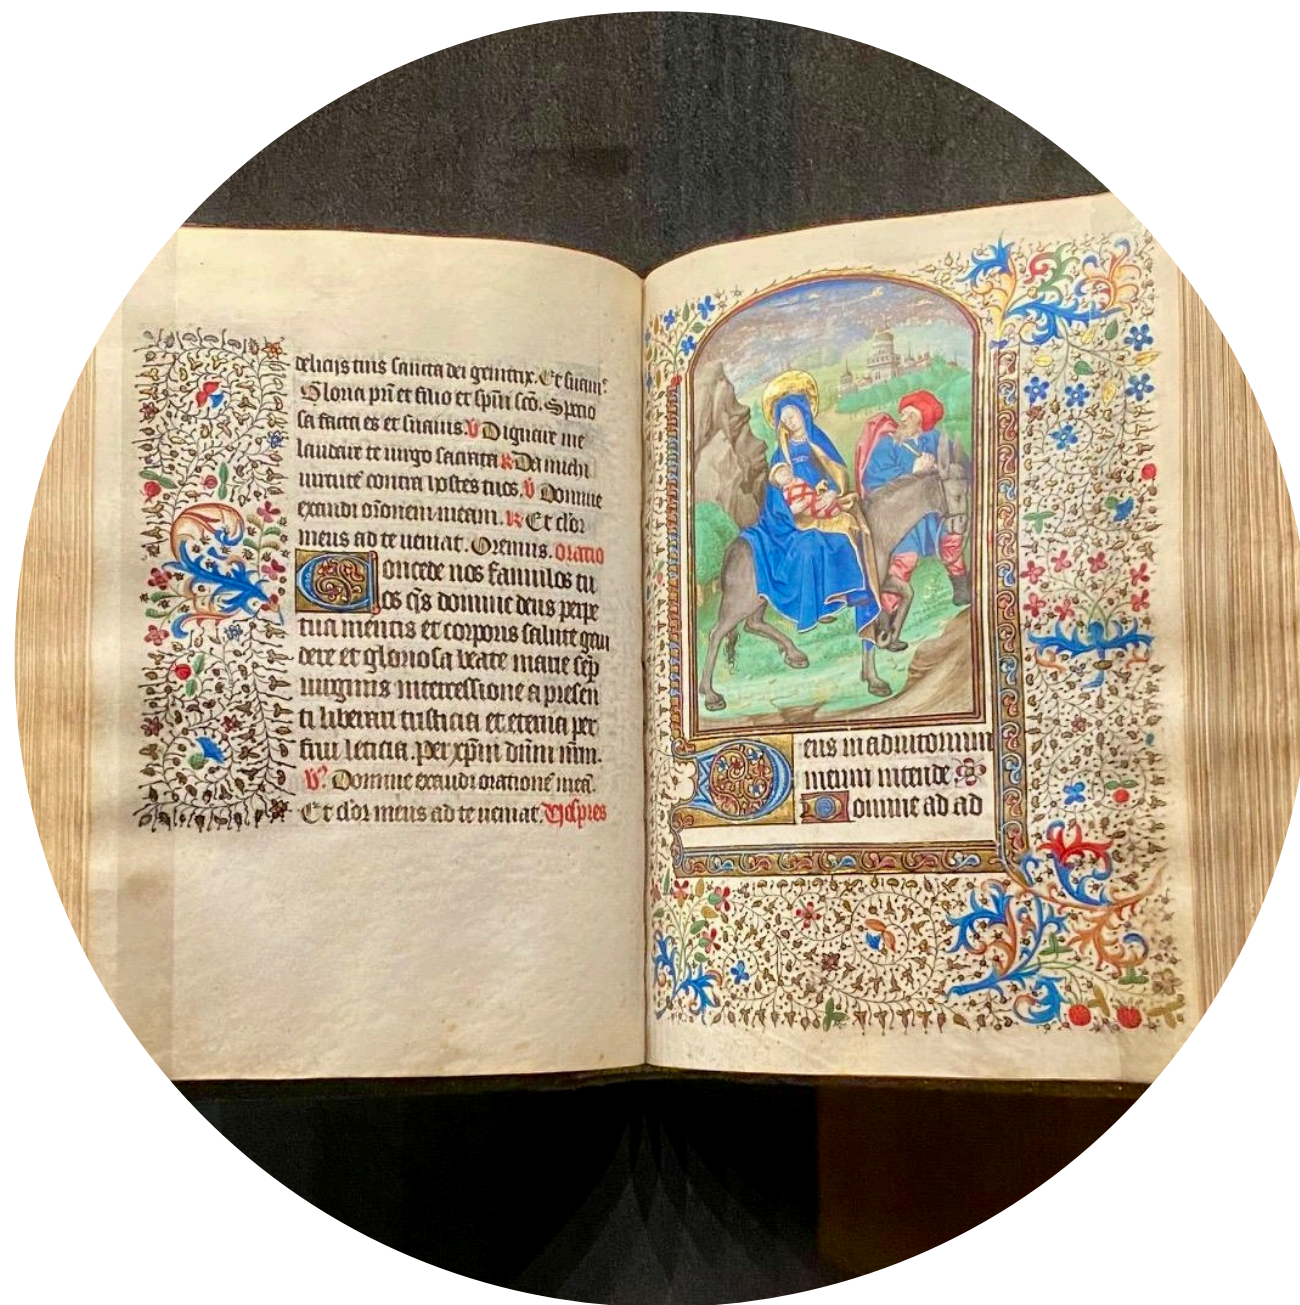 delicijs tuis sancta dei genitrix. Et suam⁹
Gloria pr̄i et filio et sp̄ui sc̄o. Specio
sa facta es et suauis. ꝟ Dignare me
laudare te uirgo sacrata ꝶ Da michi
uirtutē contra hostes tuos. ꝟ Domine
exaudi or̄onem meam. ꝶ Et clʼor
meus ad te ueniat. Oremus. Oratio
Concede nos famulos tu
os q̄s domine deus perpe
tua mentis et corporis salute gau
dere et gloriosa beate marie sēp
uirginis intercessione a presen
ti liberari tristicia et eterna per
frui leticia. Per xp̄m dn̄m nr̄m.
ꝟ. Domine exaudi orationē meā.
Et clʼor meus ad te ueniat. Vespres
Deus in adiutorium
meum intende
Domine ad ad